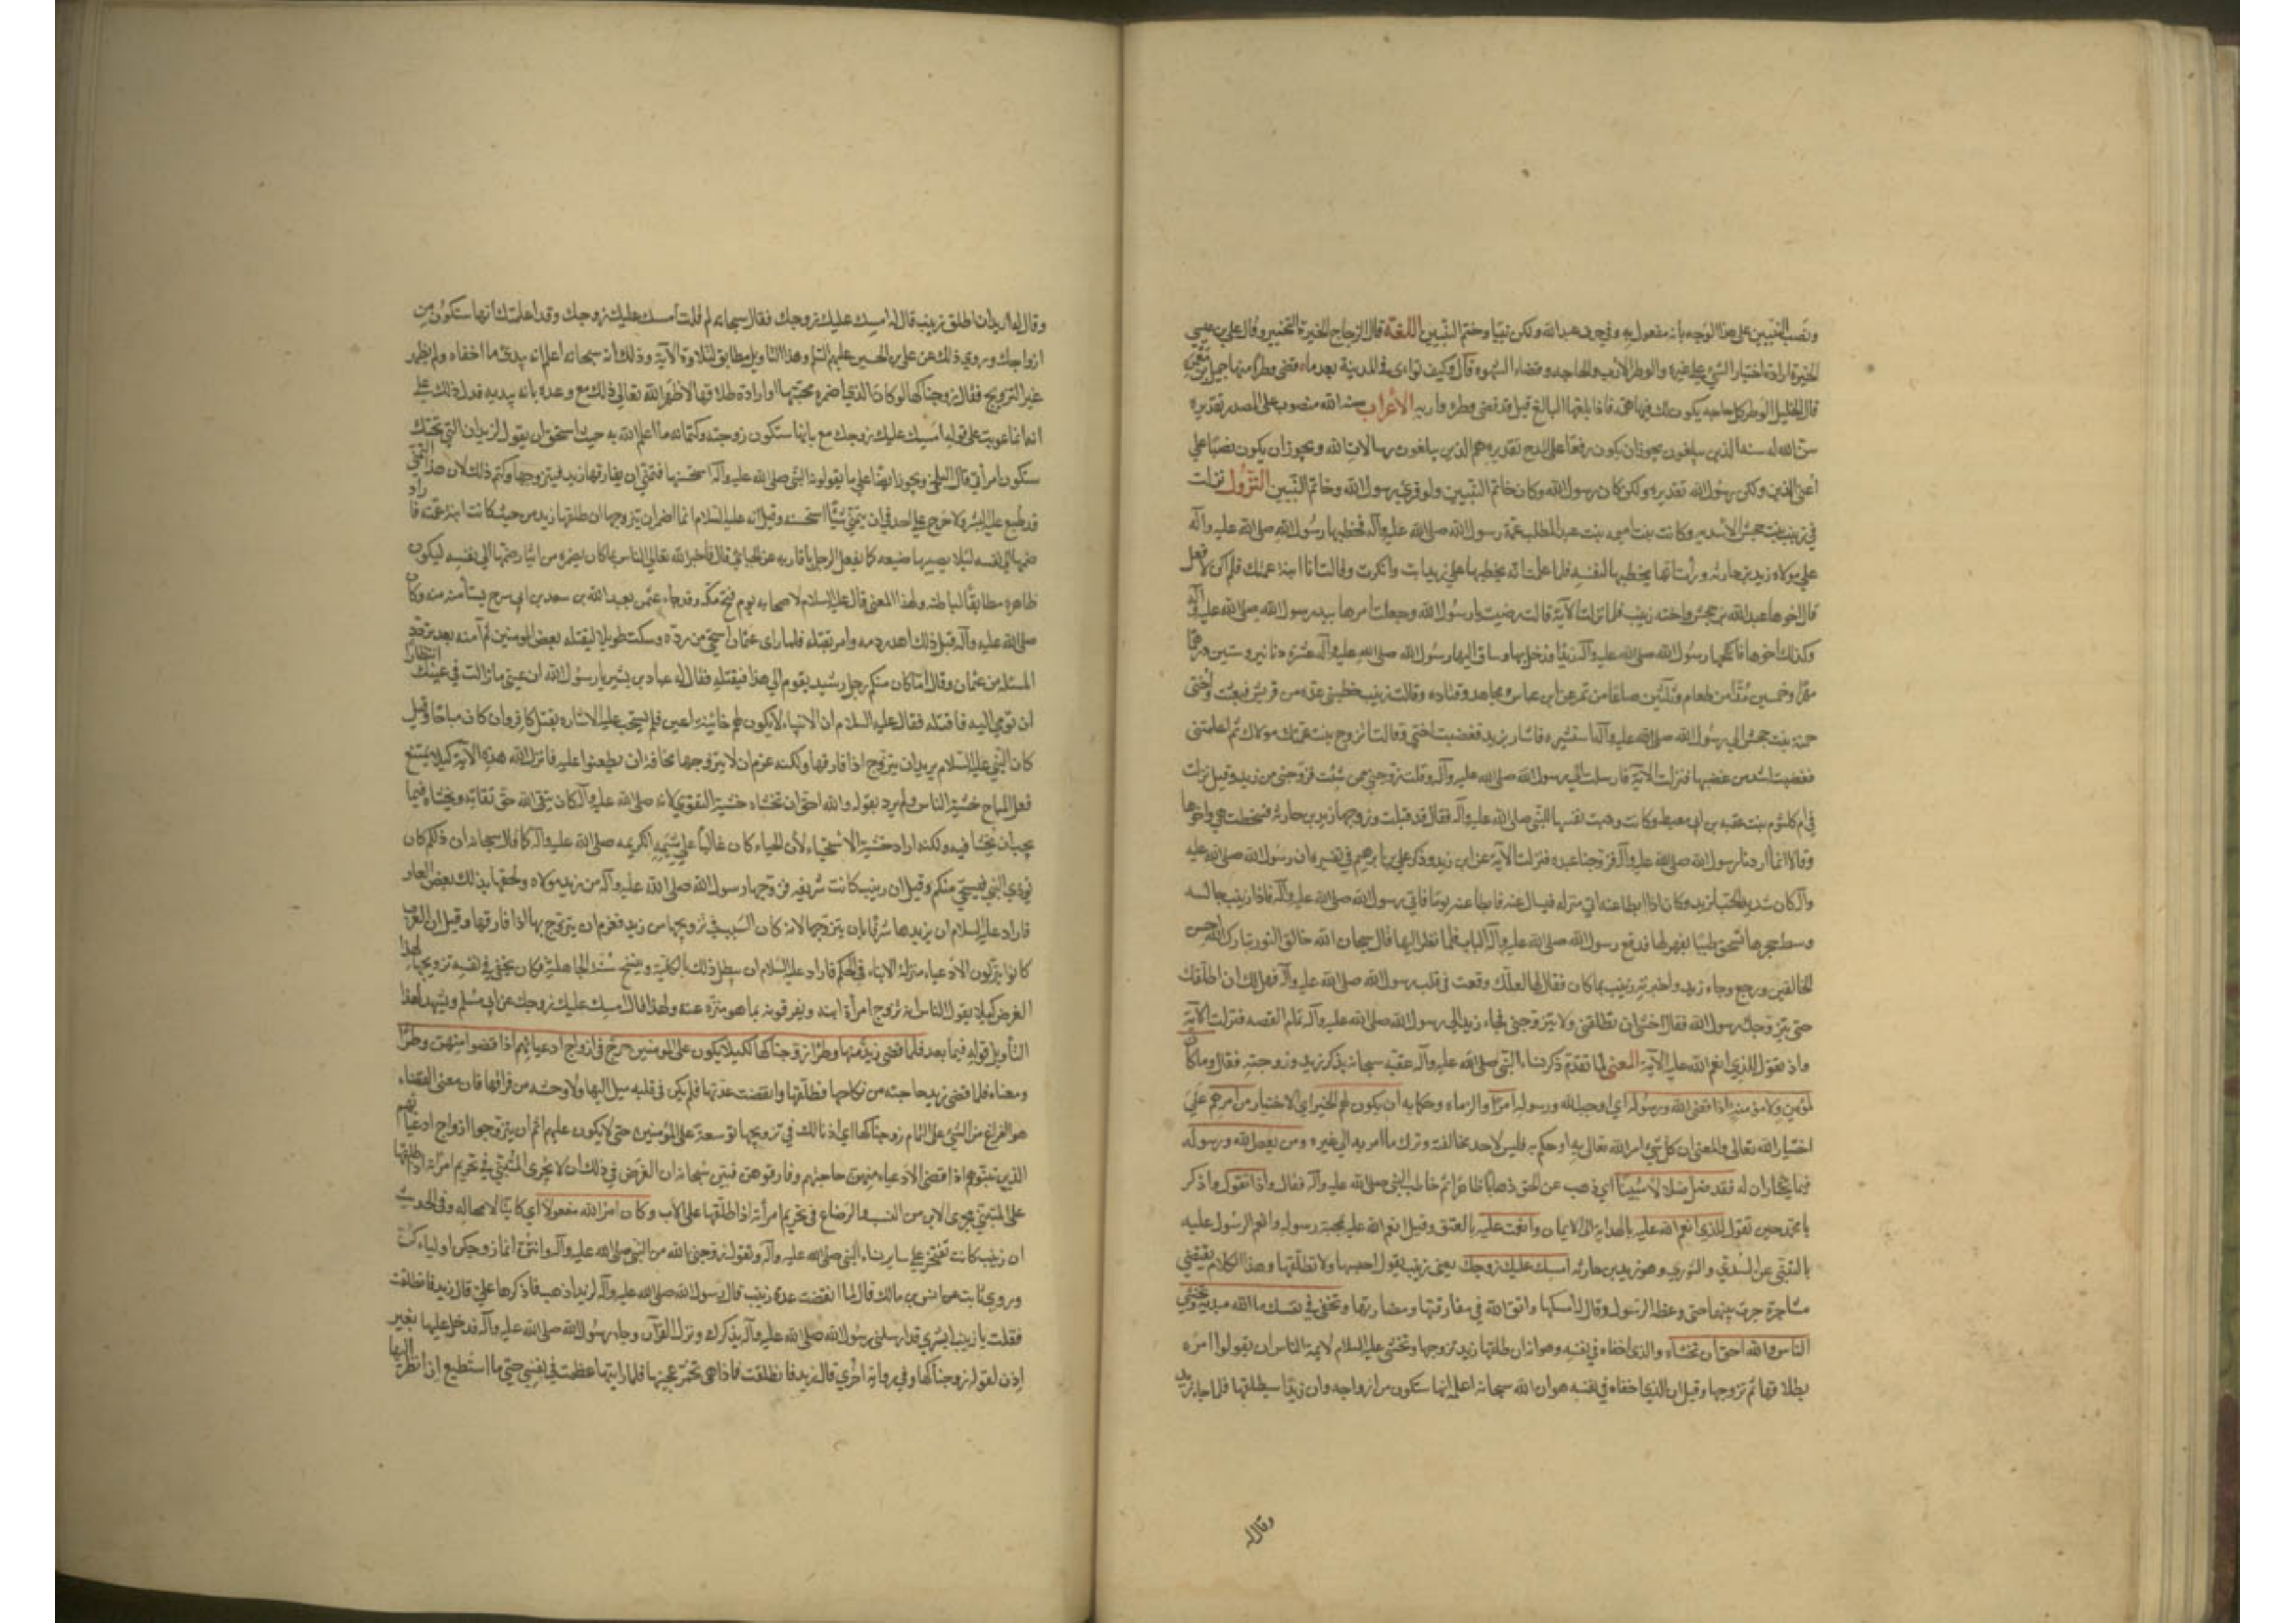 ونصب النبيين على هذا الوجه بانه مفعول به وفي حرف عبد الله ولكن نبيا وختم النبيين اللغة قال الزجاج الخيرة التخيير وقال علي بن عيسى
الخيرة ارادة اختيار الشيء على غيره والوطر الأرب والحاجه وقضاء الشهوه قال وكيف ثواءى في المدينة بعد ما قضى وطرا منها جميل بن معمر
قال الخليل الوطر كل حاجه يكون لك فيها همه فاذا بلغها البالغ قيل قد قضى وطره واربه الأعراب سنه الله منصوب على المصدر تقديره
سن الله له سنه الذين يبلغون يجوز ان يكون رفعا على المدح تقديره هم الذين يبلغون رسالات الله ويجوز ان يكون نصبا على
أعني الذين ولكن رسول الله تقديره ولكن كان رسول الله وكان خاتم النبيين ولو قرئ رسول الله وخاتم النبيين النزول نزلت
في زينب بنت جحش الأسديه وكانت بنت اميمه بنت عبد المطلب عمة رسول الله صلى الله عليه وآله فخطبها رسول الله صلى الله عليه وآله
على مولاه زيد بن حارثه ورأت انه يخطبها لنفسه فلما علمت انه يخطبها على زيد ابت وانكرت وقالت انا ابنة عمتك فلم اكن لافعل
قال اخوها عبد الله بن جحش واخته زينب فلما نزلت الآية قالت رضيت يا رسول الله وجعلت امرها بيد رسول الله صلى الله عليه وآله
وكذلك أخوها فانكحها رسول الله صلى الله عليه وآله زيدا فدخل بها وساق اليها رسول الله صلى الله عليه وآله عشرة دنانير وستين درهما
مهرا وخمسين مدا من طعام وثلثين صاعا من تمر عن ابن عباس ومجاهد وقتاده وقالت زينب خطبني عده من قريش فبعثت أختي
حمنة بنت جحش الى رسول الله صلى الله عليه وآله استشيره فاشار بزيد فغضبت اختي وقالت اتزوج بنت عمتك مولاك ثم اعلمتني
فغضبت اشد من غضبها فنزلت الآية فارسلت الى رسول الله صلى الله عليه وآله وقلت زوجني ممن شئت فزوجني من زيد وقيل نزلت
في ام كلثوم بنت عقبه بن ابي معيط وكانت وهبت نفسها للنبي صلى الله عليه وآله فقال قد قبلت وزوجها زيد بن حارثه فسخطت هي واخوها
وقالا انما أردنا رسول الله صلى الله عليه وآله فزوجنا عبده فنزلت الآية عن ابن زيد وذكر علي بن ابرهيم في تفسيره ان رسول الله صلى الله عليه
وآله كان شديد الحب لزيد وكان اذا ابطا عنه اتى منزله فيسال عنه فابطا عنه يوما فاتى رسول الله صلى الله عليه وآله فاذا زينب جالسه
وسط حجرها تسحق طيبا بفهر لها فدفع رسول الله صلى الله عليه وآله الباب فلما نظر اليها قال سبحان الله خالق النور تبارك الله احسن
الخالقين ورجع وجاء زيد واخبرته زينب بما كان فقال لها لعلك وقعت في قلب رسول الله صلى الله عليه وآله فهل لك ان اطلقك
حتى يتزوجك رسول الله فقالت اخشى ان تطلقني ولا يتزوجني فجاء زيد الى رسول الله صلى الله عليه وآله تمام القصه فنزلت الآية
واذ تقول للذي انعم الله عليه الآية المعنى لما تقدم ذكر نساء النبي صلى الله عليه وآله عقبه سبحانه بذكر زيد وزوجته فقال وما كان
لمؤمن ولا مؤمنة اذا قضى الله ورسوله اي اوجب الله ورسوله امرا والزماه وحكما به أن يكون لهم الخيرة اي الاختيار من امرهم على
اختيار الله تعالى والمعنى ان كل شيء امر الله تعالى به او حكم به فليس لاحد مخالفته وترك ما امر به الى غيره ومن يعص الله ورسوله
فيما يختاران له فقد ضل ضلالا مبينا اي ذهب عن الحق ذهابا ظاهرا ثم خاطب النبي صلى الله عليه وآله فقال واذ تقول واذكر
يا محمد حين تقول للذي انعم الله عليه بالهداية الى الايمان وانعمت عليه بالعتق وقيل انعم الله عليه بمحبة رسوله وانعم الرسول عليه
بالتبني عن السدي والثوري وهو زيد بن حارثه امسك عليك زوجك يعني زينب يقول احبسها ولا تطلقها وهذا الكلام يقتضي
مشاجرة جرت بينهما حتى وعظه الرسول وقال له امسكها واتق الله في مفارقتها ومضارتها وتخفي في نفسك ما الله مبديه وتخشى
الناس والله احق أن تخشاه والذي اخفاه في نفسه هو انه ان طلقها زيد تزوجها وخشي عليه السلام لايمة الناس ان يقولوا امره
بطلاقها ثم تزوجها وقيل ان الذي اخفاه في نفسه هو ان الله سبحانه اعلمه انها ستكون من ازواجه وان زيدا سيطلقها فلما جاء زيد
وقال له
وقال له اريد ان اطلق زينب قال له امسك عليك زوجك فقال سبحانه لم قلت أمسك عليك زوجك وقد اعلمتك أنها ستكون من
ازواجك وروي ذلك عن علي بن الحسين عليهم السلم وهذا التاويل مطابق لتلاوة الآية وذلك انه سبحانه اعلم انه يبدي ما اخفاه ولم يظهر
غير التزويج فقال زوجناكها فلو كان الذي اضمره محبتها او ارادة طلاقها لاظهر الله تعالى ذلك مع وعده بانه يبديه فدل ذلك على
انه انما عوتب على قوله امسك عليك زوجك مع علمه بانها ستكون زوجته وكتمانه ما اعلمه الله به حيث استحيى ان يقول لزيد ان التي تحتك
ستكون امرأتي قال البلخي ويجوز ايضا على ما يقولونه ان النبي صلى الله عليه وآله استحسنها فتمنى ان يفارقها زيد فيتزوجها وكتم ذلك لان هذا التمني
قد طبع عليه البشر ولا حرج على احد في ان يتمنى شيئا استحسنه وقيل انه عليه السلام انما اضمر ان يتزوجها ان طلقها زيد من حيث كانت ابنة عمته فاراد
ضمها الى نفسه لئلا يصيبها ضيعه كما يفعل الرجل باقاربه عن الجبائي قال فاخبر الله تعالى الناس بما كان يضمره من ايثار ضمها الى نفسه ليكون
ظاهره مطابقا لباطنه ولهذا المعنى قال عليه السلام لاصحابه يوم فتح مكه وقد جاءه عثمن بعبد الله بن سعد بن ابي سرح يستأمنه منه وكان
صلى الله عليه وآله قبل ذلك اهدر دمه وامر بقتله فلما راى عثمان استحى من رده وسكت طويلا ليقتله بعض المومنين ثم آمنه بعد تردد
المسئله من عثمان وقال اما كان منكم رجل رشيد يقوم الى هذا فيقتله فقال له عباد بن بشير يا رسول الله ان عيني ما زالت في عينك انتظارا
ان تومي اليه فاقتله فقال عليه السلام ان الانبياء لا يكون لهم خائنة اعين فلم يستحب عليه الاشاره بقتل كافر وان كان مباحا وقيل
كان النبي عليه السلام يريد ان يتزوج اذا فارقها ولكنه عزم ان لا يتزوجها مخافة ان يطعنوا عليه فانزل الله هذه الآية كيلا يمتنع
فعل المباح خشية الناس ولم يرد بقوله والله احق ان تخشاه خشية التقوي لانه صلى الله عليه وآله كان يتقي الله حق تقاته ويخشاه فيما
يجب ان يخشا فيه ولكنه اراد خشية الاستحياء لأن الحياء كان غالبا على شيمه الكريمه صلى الله عليه وآله كما قال سبحانه ان ذلكم كان
يوذي النبي فيستحي منكم وقيل ان زينب كانت شريفه فزوجها رسول الله صلى الله عليه وآله من زيد مولاه ولحقها بذلك بعض العار
فاراد عليه السلام ان يزيدها شرفا بان يتزوجها لانه كان السبب في تزويجها من زيد فعزم ان يتزوج بها اذا فارقها وقيل ان العرب
كانوا ينزلون الادعياء منزلة الابناء في الحكم فاراد عليه السلام ان يبطل ذلك بالكلية وينسخ سنة الجاهلية فكان يخفي في نفسه تزويجها لهذا
الغرض كيلا يقول الناس انه تزوج امرأة ابنه ويقرفونه بما هو منزه عنه ولهذا قال امسك عليك زوجك عن ابي مسلم ويشهد لهذا
التأويل قوله فيما بعد فلما قضى زيد منها وطرا زوجناكها لكيلا يكون على المومنين حرج في ازواج ادعيائهم اذا قضوا منهن وطرا
ومعناه فلما قضى زيد حاجته من نكاحها فطلقها وانقضت عدتها فلم يكن في قلبه ميل اليها ولا وحشه من فراقها فان معنى القضاء
هو الفراغ من الشيء على التمام زوجناكها اي اذنا لك في تزويجها توسعة على المؤمنين حتى لا يكون عليهم اثم ان يتزوجوا ازواج ادعيائهم
الذين تبنوهم اذا قضى الادعياء منهن حاجتهم وفارقوهن فبين سبحانه ان الغرض في ذلك ان لا يجرى المتبنى في تحريم امراته اذا طلقها
على المتبني مجرى الابن من النسب والرضاع في تحريم امرأته اذا طلقها على الأب وكان امر الله مفعولا اي كاينا لا محاله وفي الحديث
ان زينب كانت تفتخر على ساير نساء النبي صلى الله عليه وآله وتقول زوجني الله من النبي صلى الله عليه وآله وانتن انما زوجكن اولياءكن
وروى ثابت عن انس بن مالك قال لما انقضت عدة زينب قال رسول الله صلى الله عليه وآله لزيد اذهب فاذكرها علي قال زيد فانطلقت
فقلت يا زينب ابشري قد ارسلني رسول الله صلى الله عليه وآله يذكرك ونزل القرآن وجاء رسول الله صلى الله عليه وآله فدخل عليها بغير
إذن لقوله زوجناكها وفي رواية اخرى قال زيد فانطلقت فاذا هي تخمر عجينها فلما رايتها عظمت في نفسي حتى ما استطيع ان انظر اليها